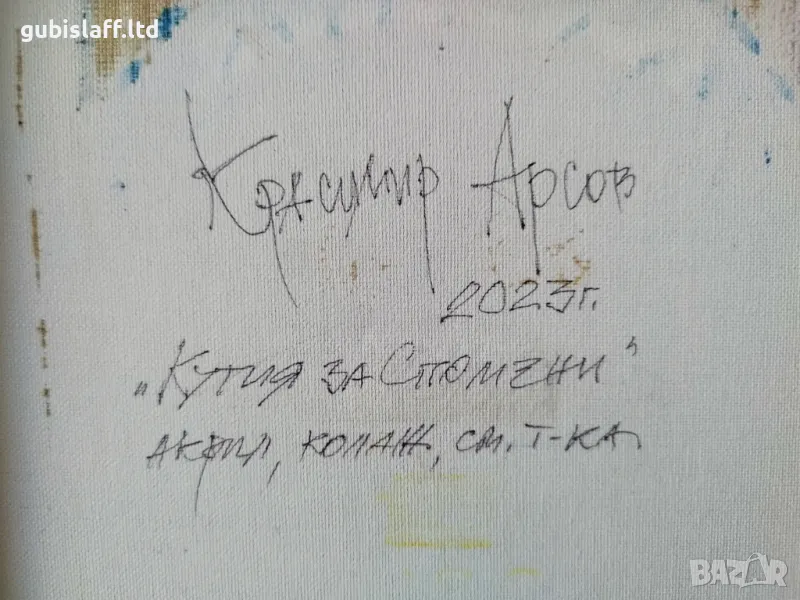 gubislaff.ltd
Красимир Арсов
2023г.
„Кутия за Спомени"
акрил, колаж, см. т-ка
BAZAR